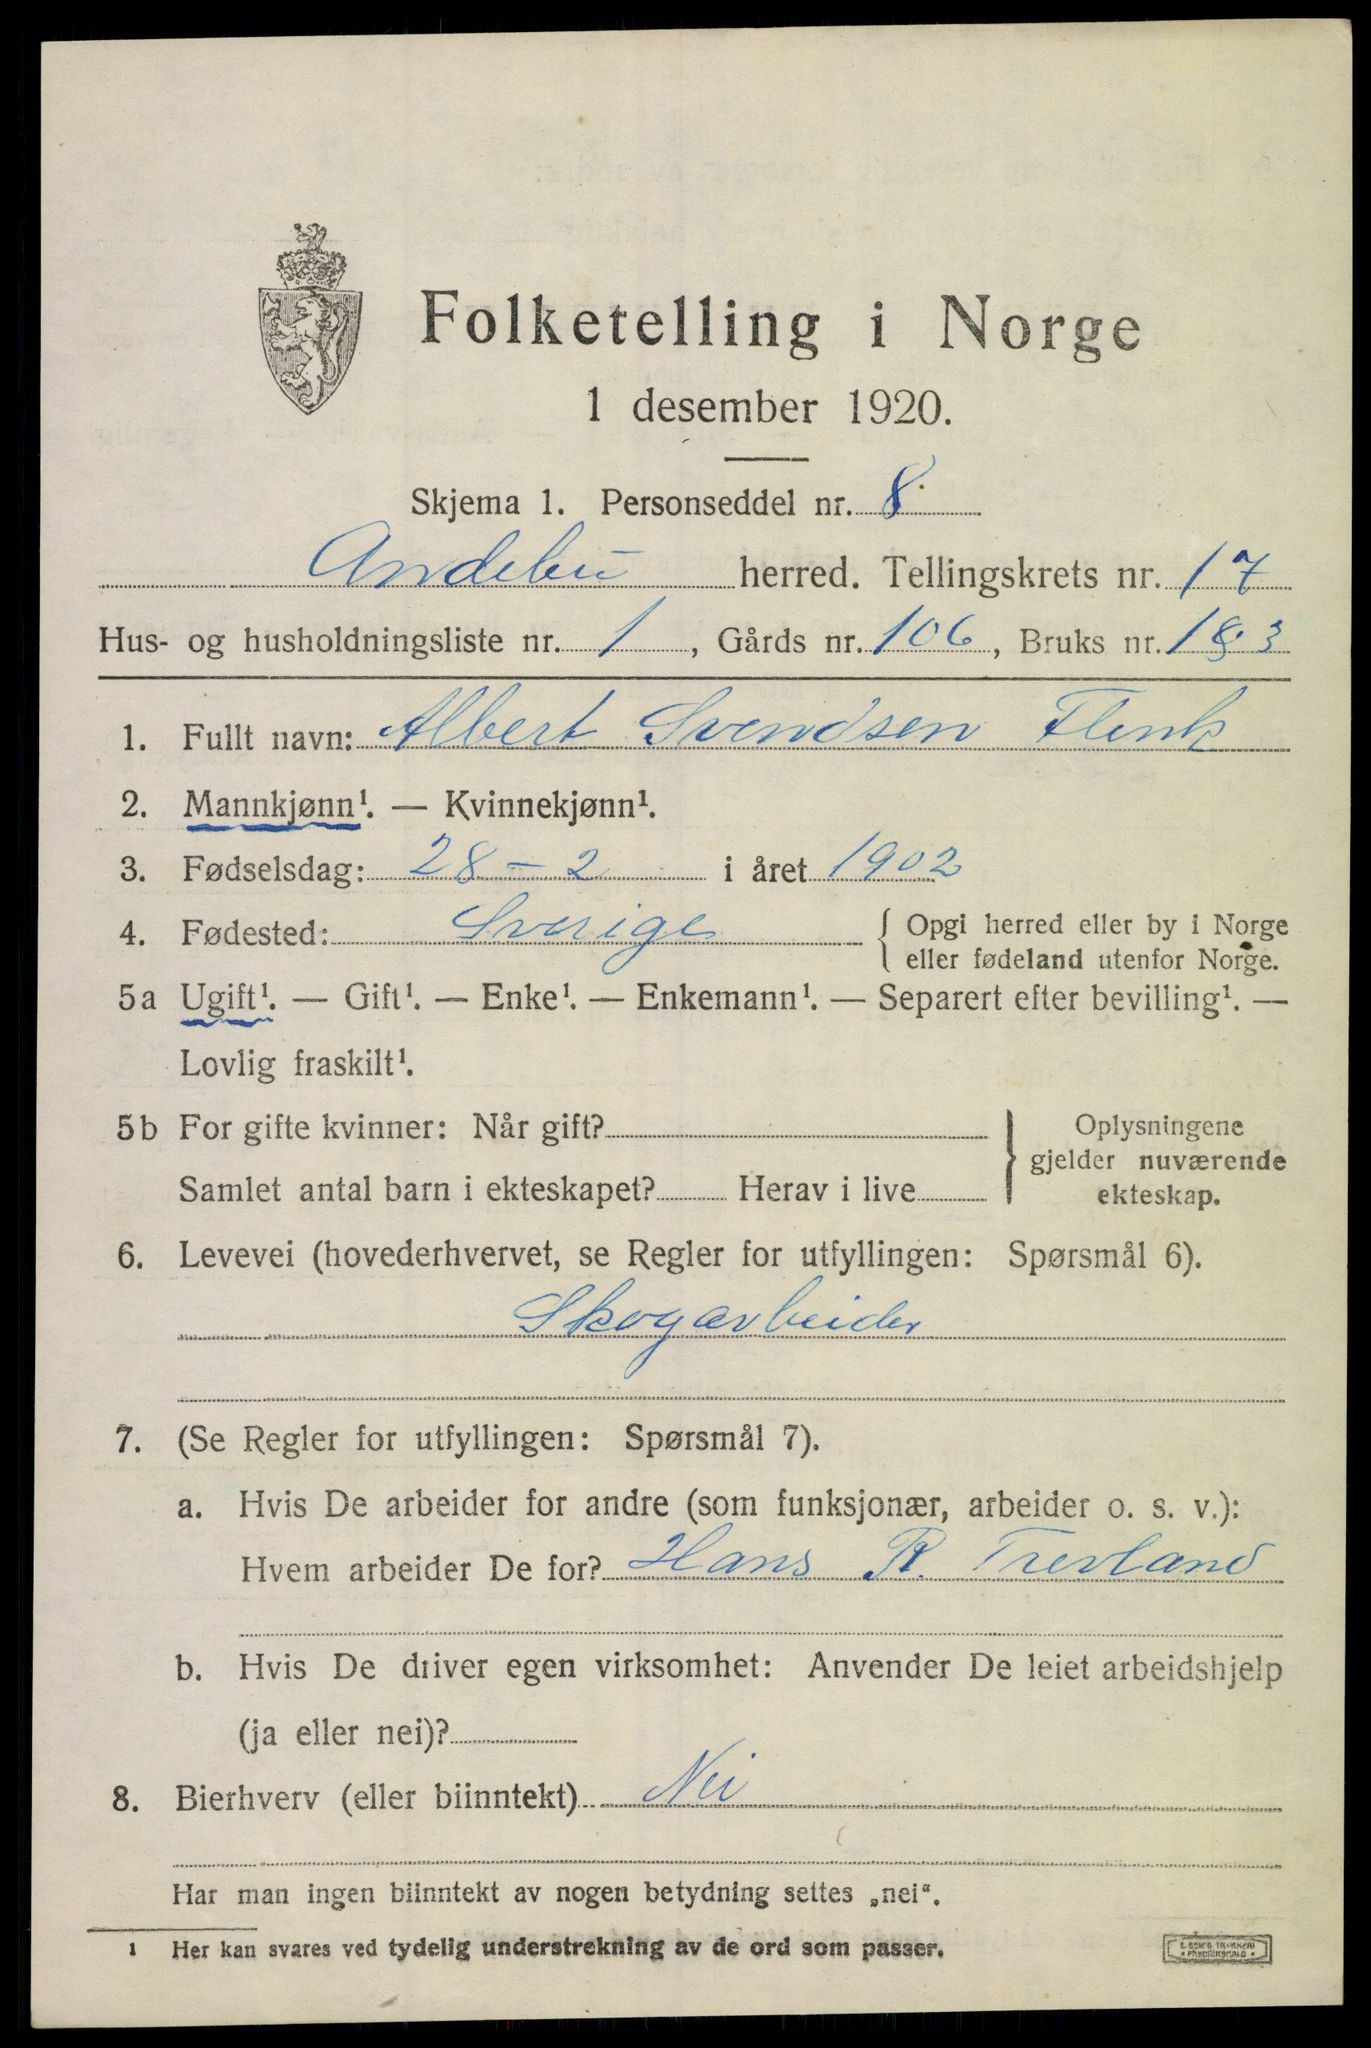 Folketelling i Norge
1 desember 1920.
Skjema 1. Personseddel nr. 8
Andebu herred. Tellingskrets nr. 17
Hus- og husholdningsliste nr. 1, Gårds nr. 106, Bruks nr.
1. Fullt navn: Albert Svendsen Flink
2. Mannkjønn¹. — Kvinnekjønn¹.
3. Fødselsdag: 28 – 2 i året 1902
4. Fødested: Sverige { Opgi herred eller by i Norge
eller fødeland utenfor Norge.
5a Ugift¹. — Gift¹. — Enke¹. — Enkemann¹. — Separert efter bevilling¹. —
Lovlig fraskilt¹.
5b For gifte kvinner: Når gift? } Oplysningene
gjelder nuværende
Samlet antal barn i ekteskapet? Herav i live
ekteskap.
6. Levevei (hovederhvervet, se Regler for utfyllingen: Spørsmål 6).
Skogarbeider
7. (Se Regler for utfyllingen: Spørsmål 7).
a. Hvis De arbeider for andre (som funksjonær, arbeider o. s. v.):
Hvem arbeider De for? Hans R. Trevland
b. Hvis De driver egen virksomhet: Anvender De leiet arbeidshjelp
(ja eller nei)?
8. Bierhverv (eller biinntekt) Nei
Har man ingen biinntekt av nogen betydning settes „nei“.
1 Her kan svares ved tydelig understrekning av de ord som passer.